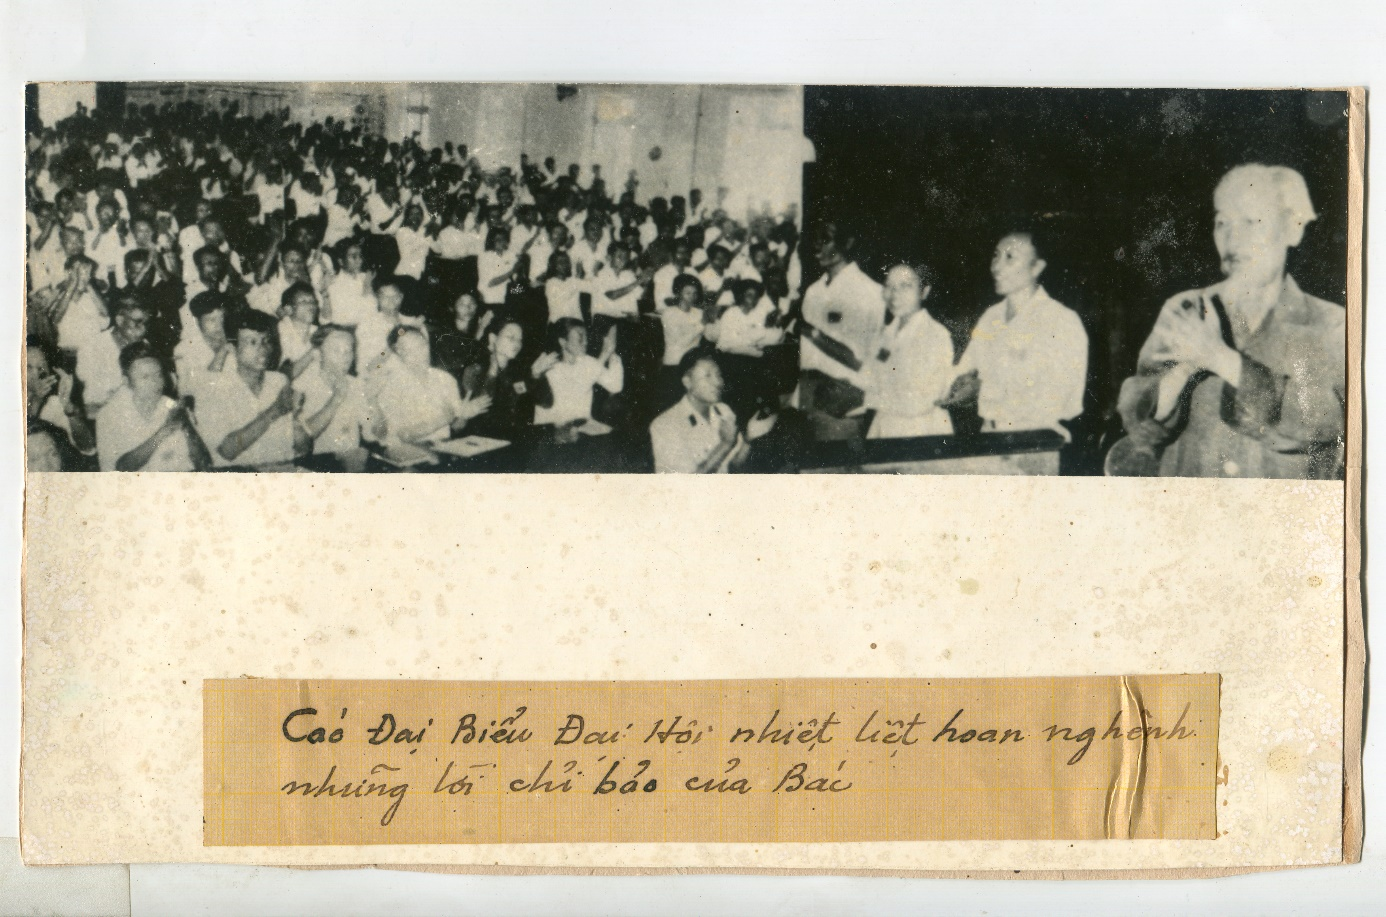 Các Đại Biểu Đại Hội nhiệt liệt hoan nghênh
những lời chỉ bảo của Bác